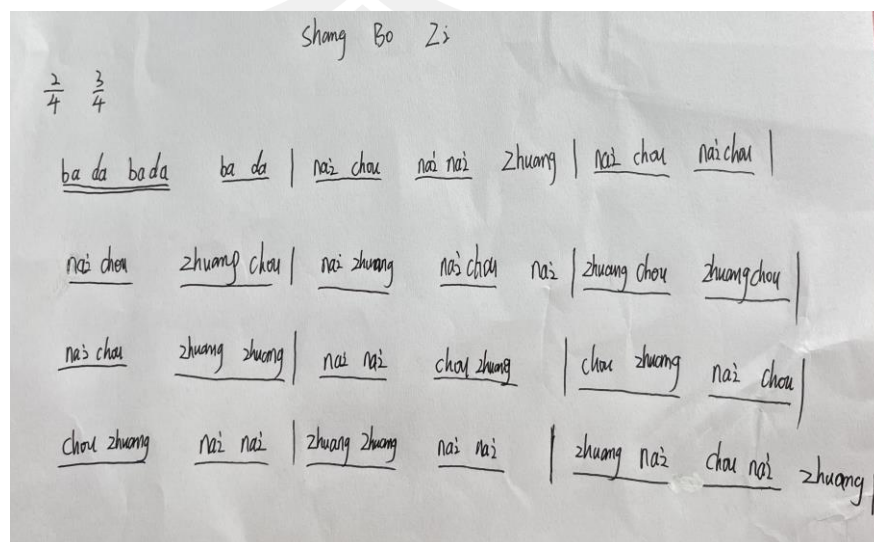 Shang Bo Zi
2/4 3/4
ba da bada ba da | nai chou nai nai zhuang | nai chou naichou |
nai chou zhuang chou | nai zhuang nai chou nai | zhuang chou zhuangchou |
nai chou zhuang zhuang | nai nai chou zhuang | chou zhuang nai chou |
chou zhuang nai nai | zhuang zhuang nai nai | zhuang nai chou nai zhuang |